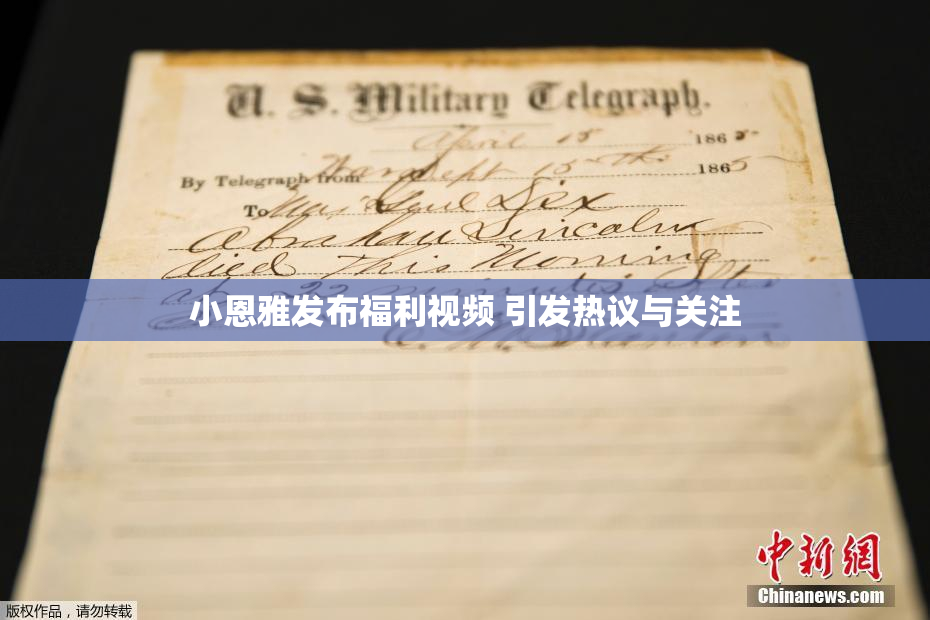 U. S. Military Telegraph.
April 15 1865
By Telegraph from War Dept 15th 1865
To Maj Genl Dix
Abraham Lincoln
died This Morning
at 22 minutes after
小恩雅发布福利视频 引发热议与关注
E. M. Stanton
中新网
Chinanews.com
版权作品，请勿转载